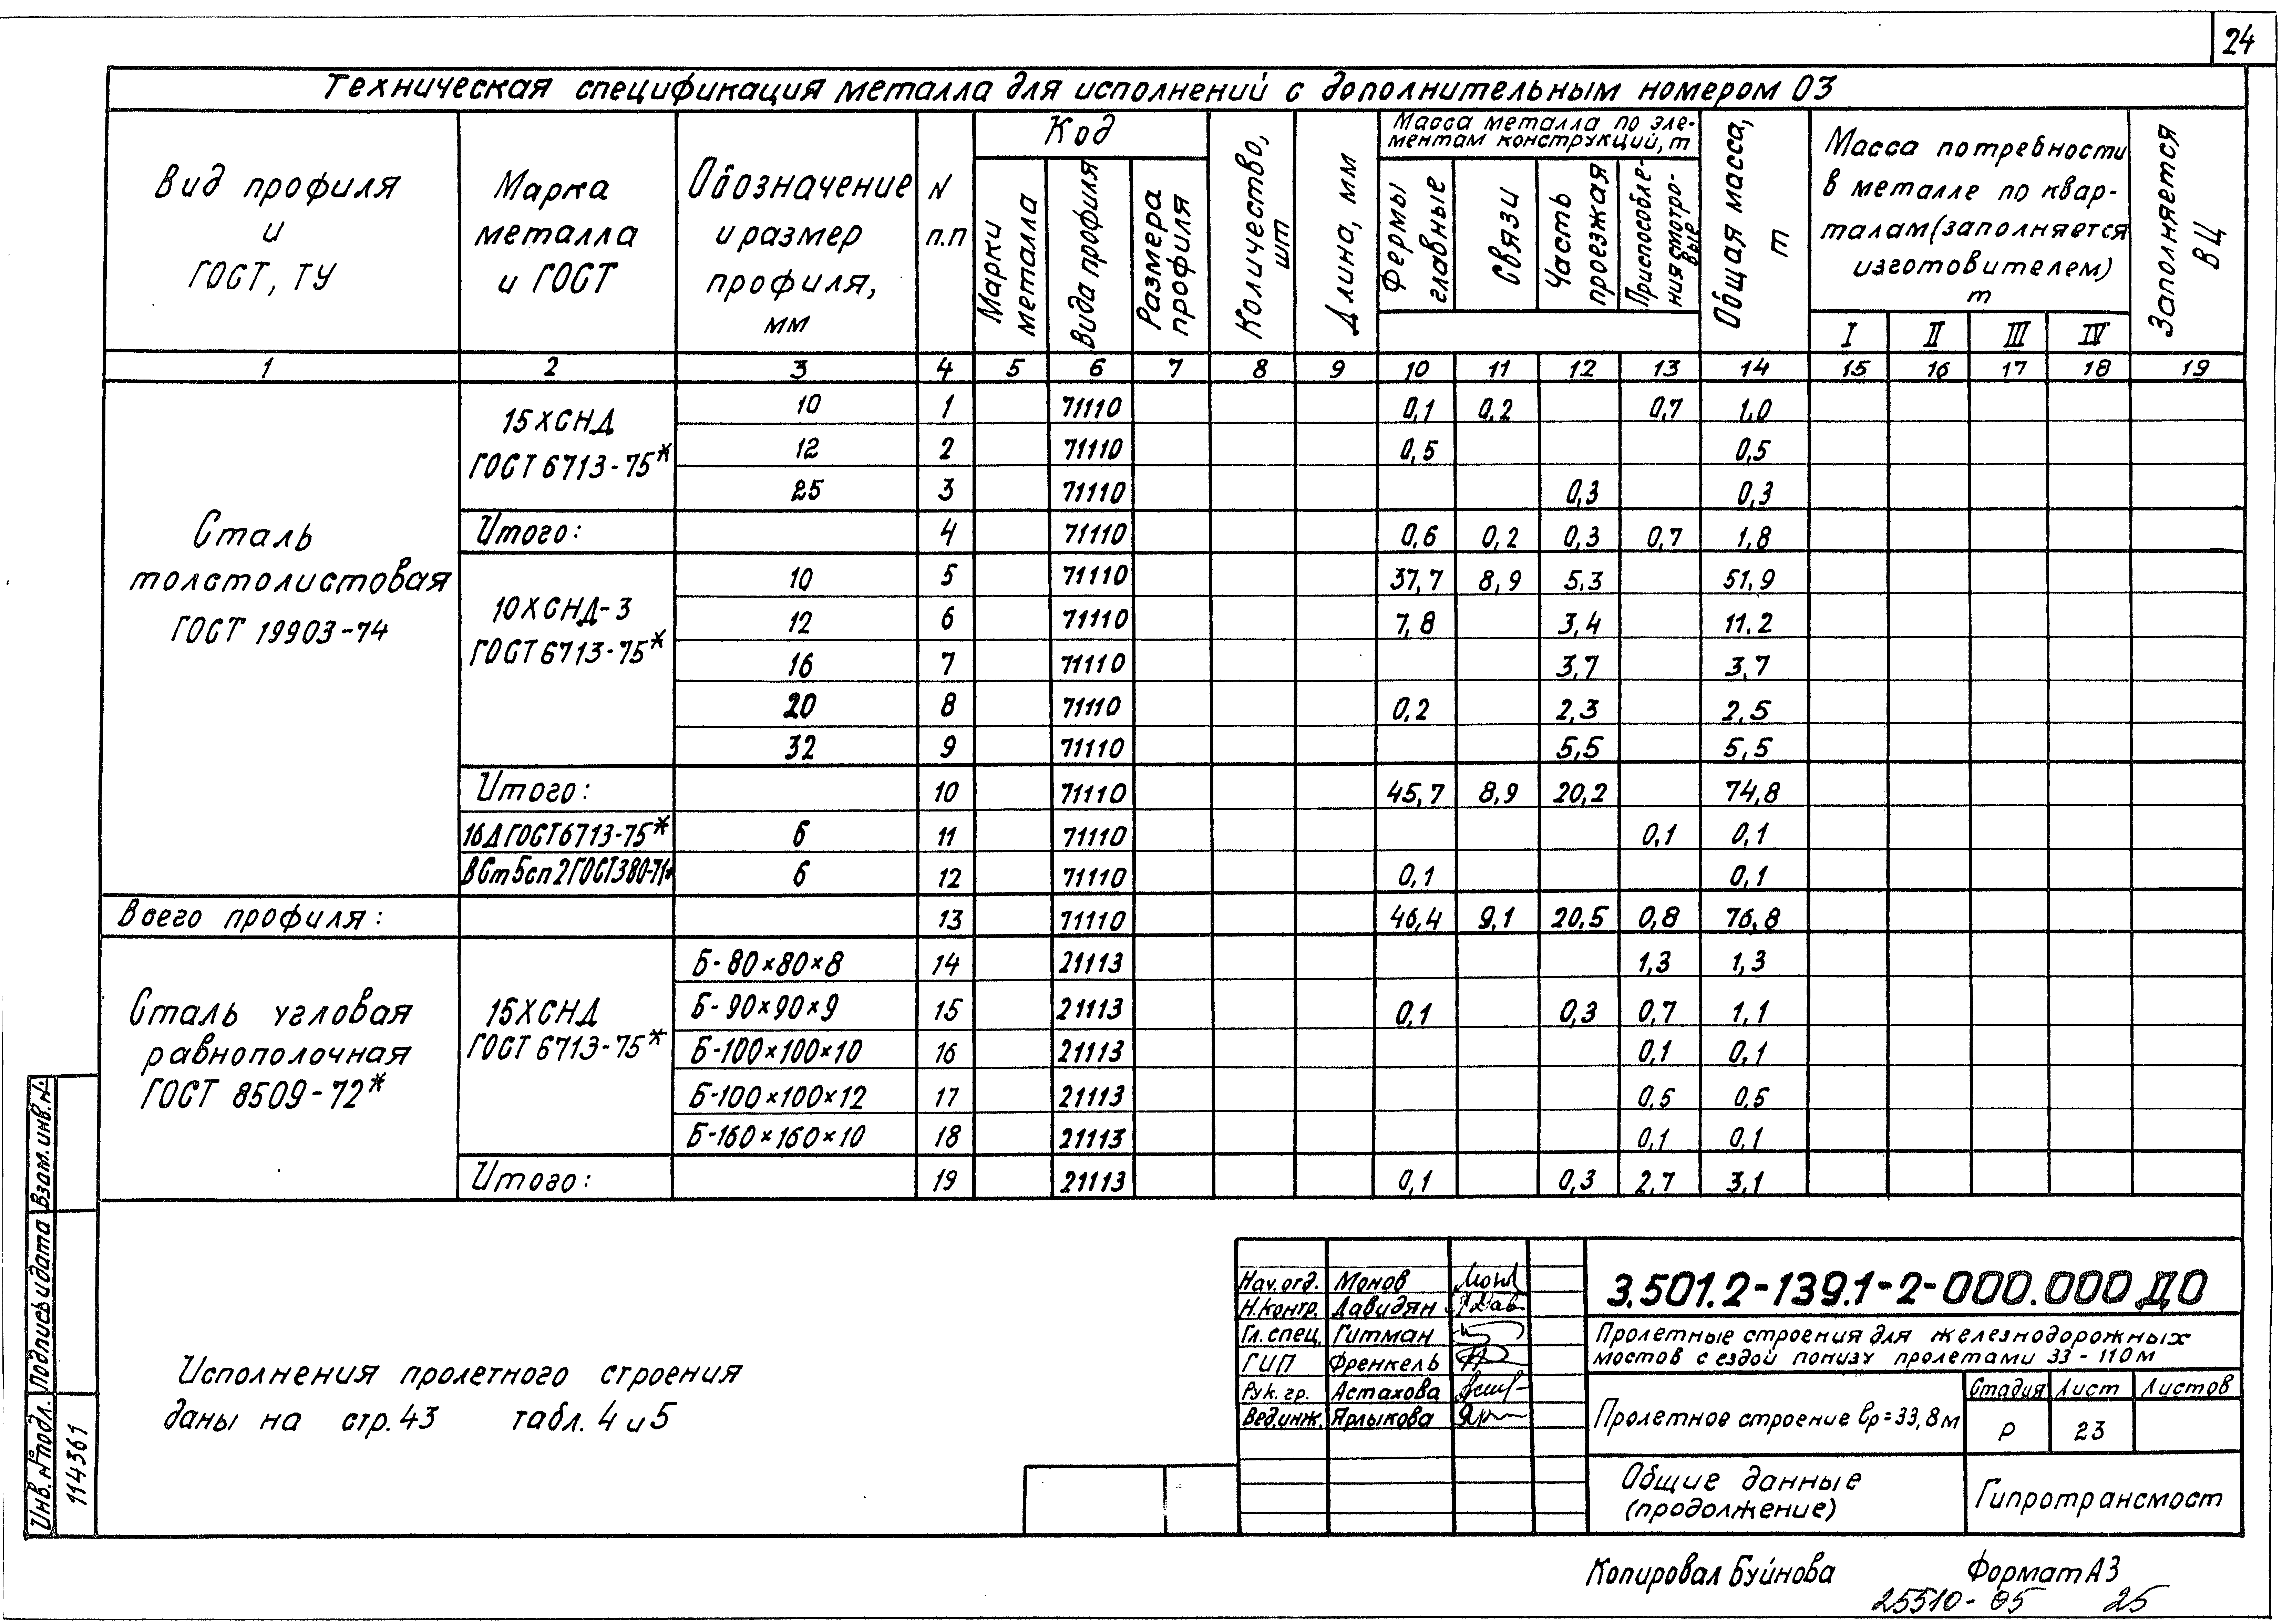 24
Техническая спецификация металла для исполнений с дополнительным номером 03
Вид профиля и ГОСТ, ТУ
Марка металла и ГОСТ
Обозначение и размер профиля, мм
N п.п
Код
Марки металла
Вида профиля
Размера профиля
Количество, шт
Длина, мм
Масса металла по элементам конструкций, т
Фермы главные
Связи
Часть проезжая
Приспособления смотровые
Общая масса, т
Масса потребности в металле по кварталам (заполняется изготовителем) т
I II III IV
Заполняется ВЦ
1 2 3 4 5 6 7 8 9 10 11 12 13 14 15 16 17 18 19
Сталь толстолистовая ГОСТ 19903-74
15ХСНД ГОСТ 6713-75*
10 1 71110 0,1 0,2 0,7 1,0
12 2 71110 0,5 0,5
25 3 71110 0,3 0,3
Итого: 4 71110 0,6 0,2 0,3 0,7 1,8
10ХСНД-3 ГОСТ 6713-75*
10 5 71110 37,7 8,9 5,3 51,9
12 6 71110 7,8 3,4 11.2
16 7 71110 3,7 3,7
20 8 71110 0,2 2,3 2,5
32 9 71110 5,5 5,5
Итого: 10 71110 45,7 8,9 20,2 74,8
16Д ГОСТ 6713-75* 6 11 71110 0,1 0,1
ВСт5сп2 ГОСТ 380-71* 6 12 71110 0,1 0,1
Всего профиля: 13 71110 46,4 9,1 20,5 0,8 76,8
Сталь угловая равнополочная ГОСТ 8509-72*
15ХСНД ГОСТ 6713-75*
Б-80×80×8 14 21113 1,3 1,3
Б-90×90×9 15 21113 0,1 0,3 0,7 1,1
Б-100×100×10 16 21113 0,1 0,1
Б-100×100×12 17 21113 0,5 0,5
Б-160×160×10 18 21113 0,1 0,1
Итого: 19 21113 0,1 0,3 2,7 3,1
Исполнения пролетного строения
даны на стр. 43 табл. 4 и 5
Взам. инв. №
Подпись и дата
Инв. № подл.
114361
Нач. отд. Монов
Н. контр. Давидян
Гл. спец. Гитман
ГИП Френкель
Рук. гр. Астахова
Вед. инж. Ярлыкова
3.501.2-139.1-2-000.000 ДО
Пролетные строения для железнодорожных
мостов с ездой понизу пролетами 33-110м
Пролетное строение lр=33,8м
Стадия Лист Листов
Р 23
Общие данные
(продолжение)
Гипротрансмост
Копировал Буйнова Формат А3
25510-05 25